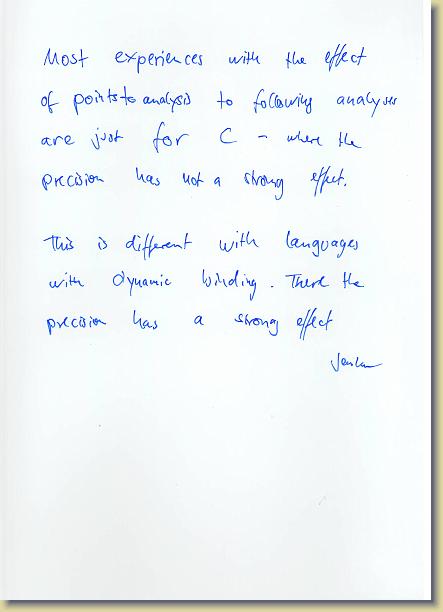 Most experiences with the effect
of points to analysis to following analyses
are just for C - where the
precision has not a strong effect.
This is different with languages
with dynamic binding. There the
precision has a strong effect